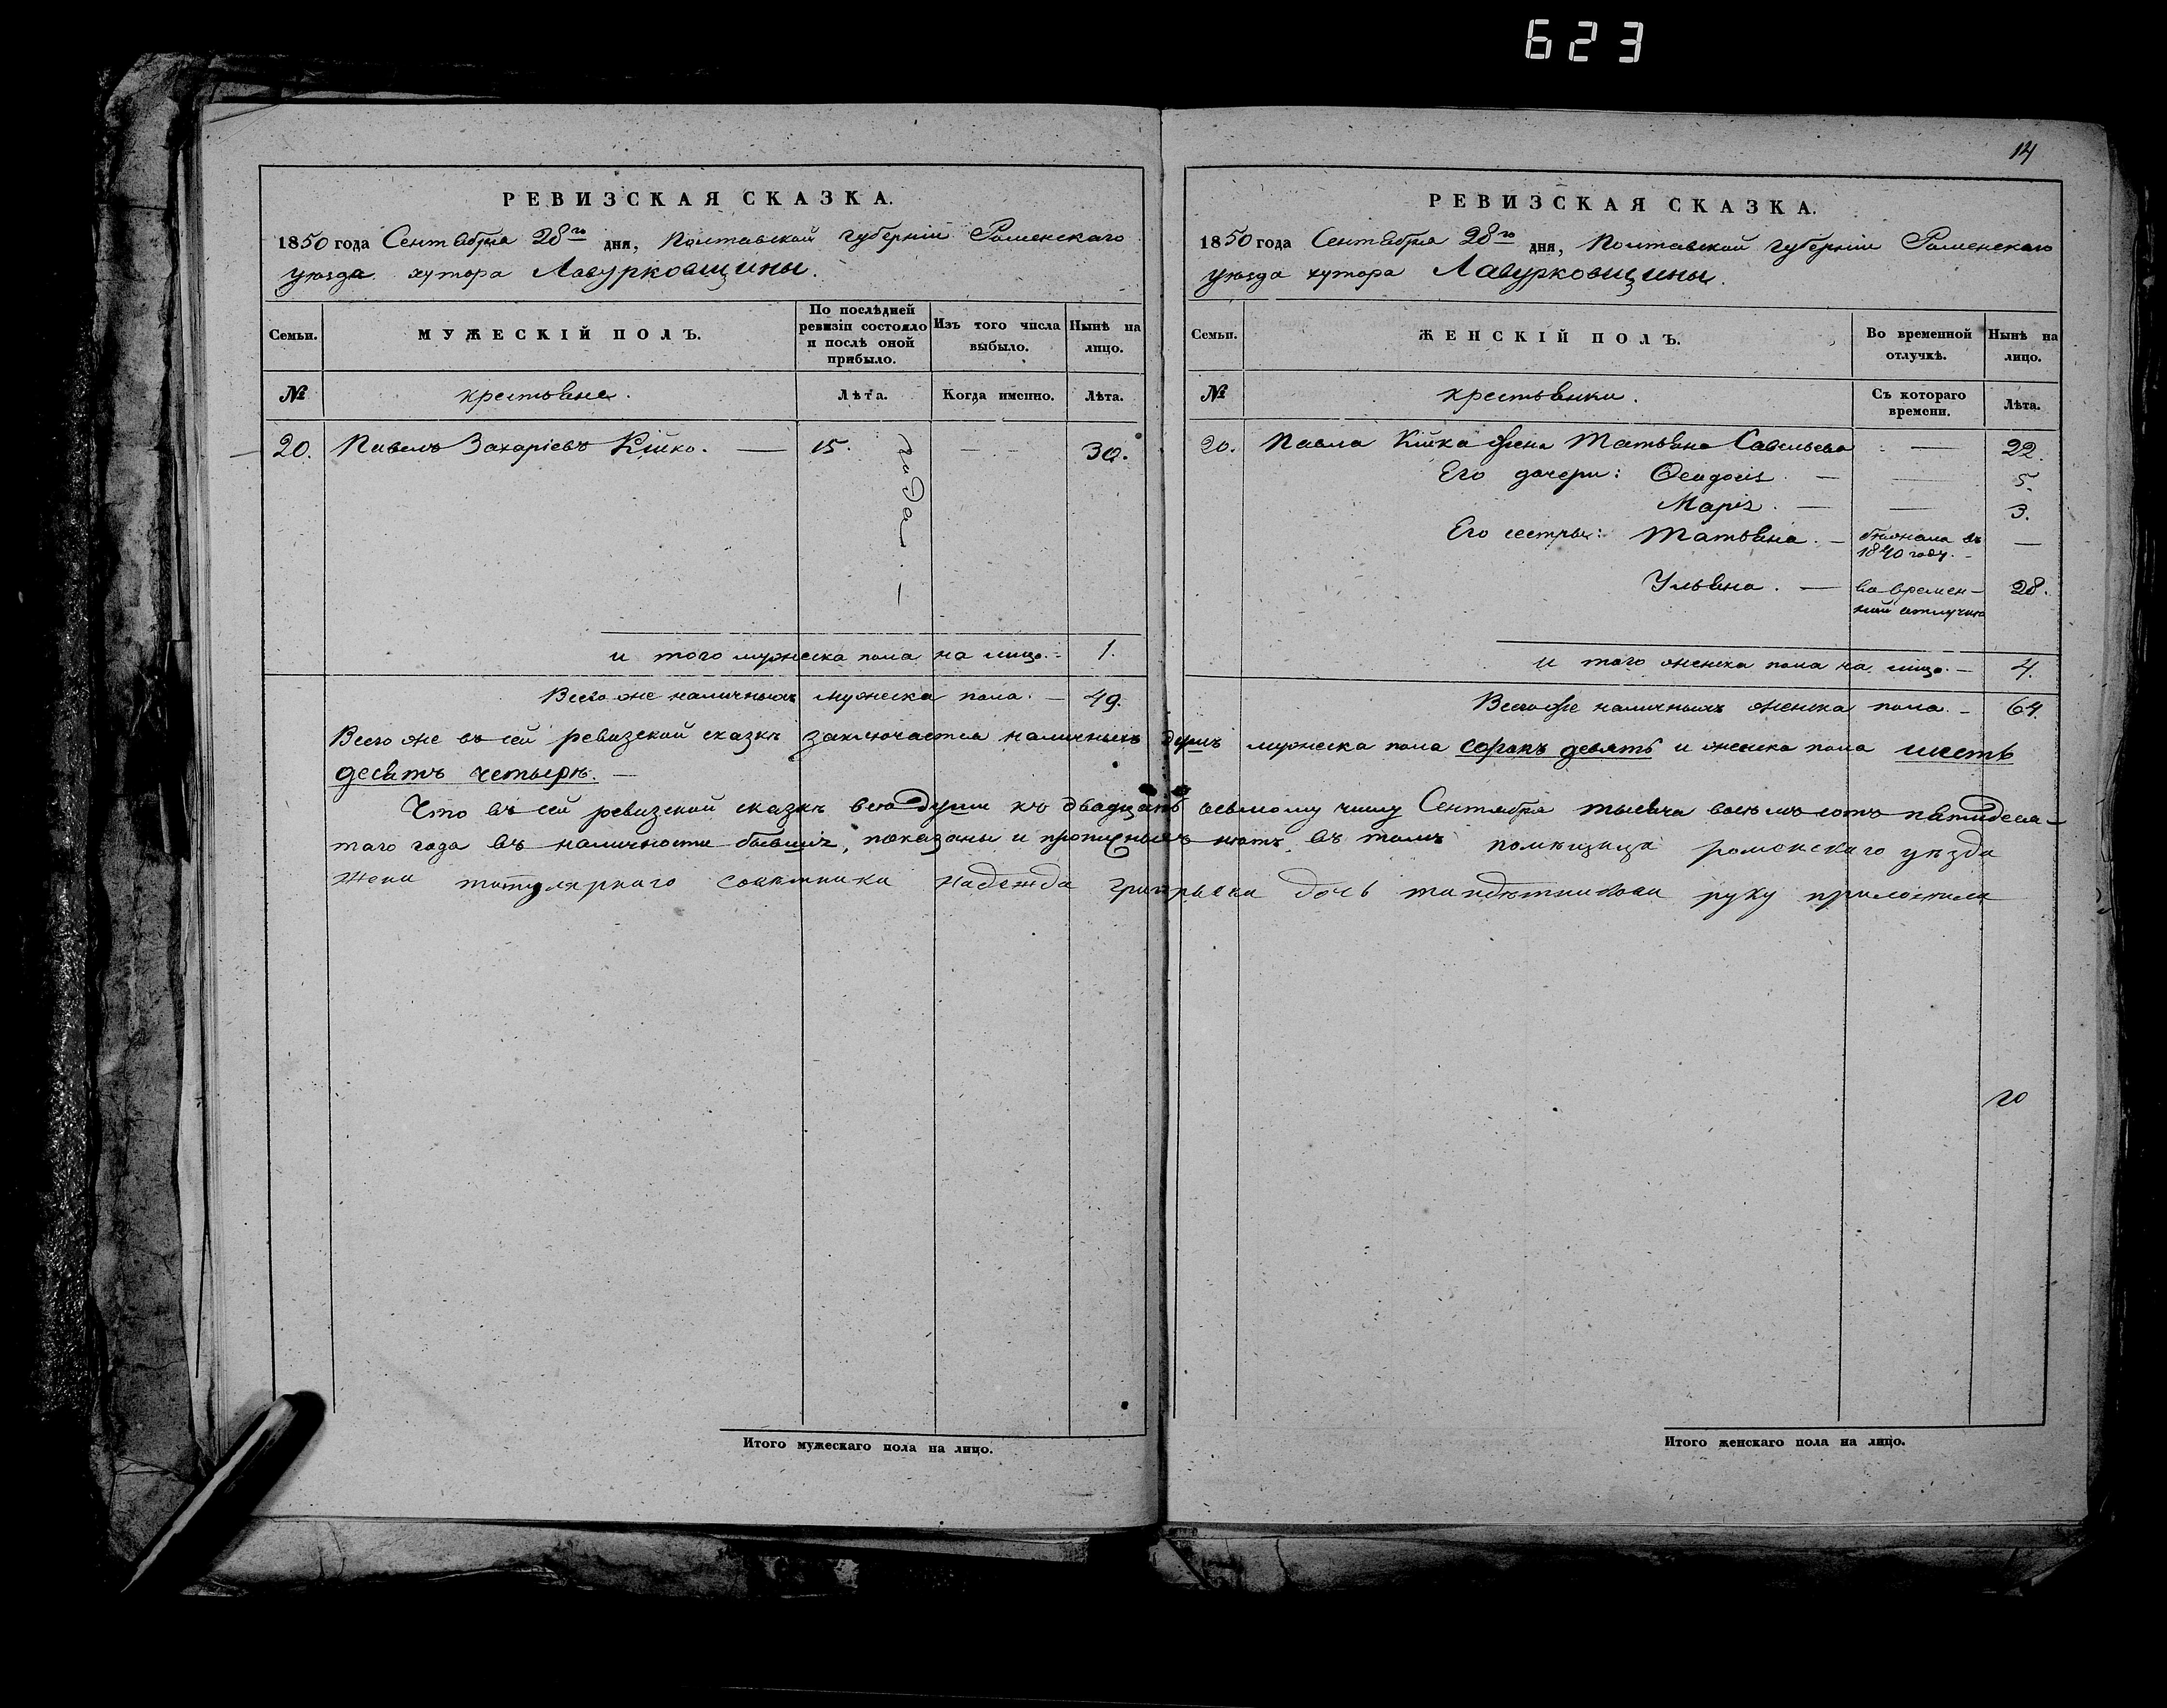 623
14
РЕВИЗСКАЯ СКАЗКА.
1850 года Сентября 28го дня, Полтавской губерніи Роменскаго
уѣзда хутора Лавурковщины.
Семьи.
МУЖЕСКІЙ ПОЛЪ.
По послѣдней ревизіи состояло и послѣ оной прибыло.
Изъ того числа выбыло.
Нынѣ на лицо.
№
крестьяне.
Лѣта.
Когда именно.
Лѣта.
20. Павелъ Захаріевъ Кійко. — 15. — — 30.
года. —
и того мужеска пола на лицо. — 1.
Всего же наличныхъ мужеска пола. — 49.
РЕВИЗСКАЯ СКАЗКА.
1850 года Сентября 28го дня, Полтавской губерніи Роменскаго
уѣзда хутора Лавурковщины.
Семьи.
ЖЕНСКІЙ ПОЛЪ.
Во временной отлучкѣ.
Нынѣ на лицо.
№
крестьянки.
Съ котораго времени.
Лѣта.
20. Павла Кійка жена Татьяна Савельева — 22.
Его дочери: Феодосія. — — 5.
Марія. — — 3.
Его сестры: Татьяна. — въ
1840 году. — —
Ульяна. — во времен-
ной отлучкѣ 28.
и того женска пола на лицо. — 4.
Всего же наличныхъ женска пола. — 64.
Всего же въ сей ревизской сказкѣ заключается наличныхъ душъ мужеска пола сорокъ девять и женска пола шесть
десятъ четыре. —
Что въ сей ревизской сказкѣ всѣ души къ двадцать осьмому числу Сентября тысяча восемь сотъ пятидеся-
таго года въ наличности бывшіе, показаны и прописныхъ нѣтъ, въ томъ помѣщица роменскаго уѣзда
жена титулярнаго совѣтника надежда григорьева дочь руку приложила
20
Итого мужескаго пола на лицо.
Итого женскаго пола на лицо.